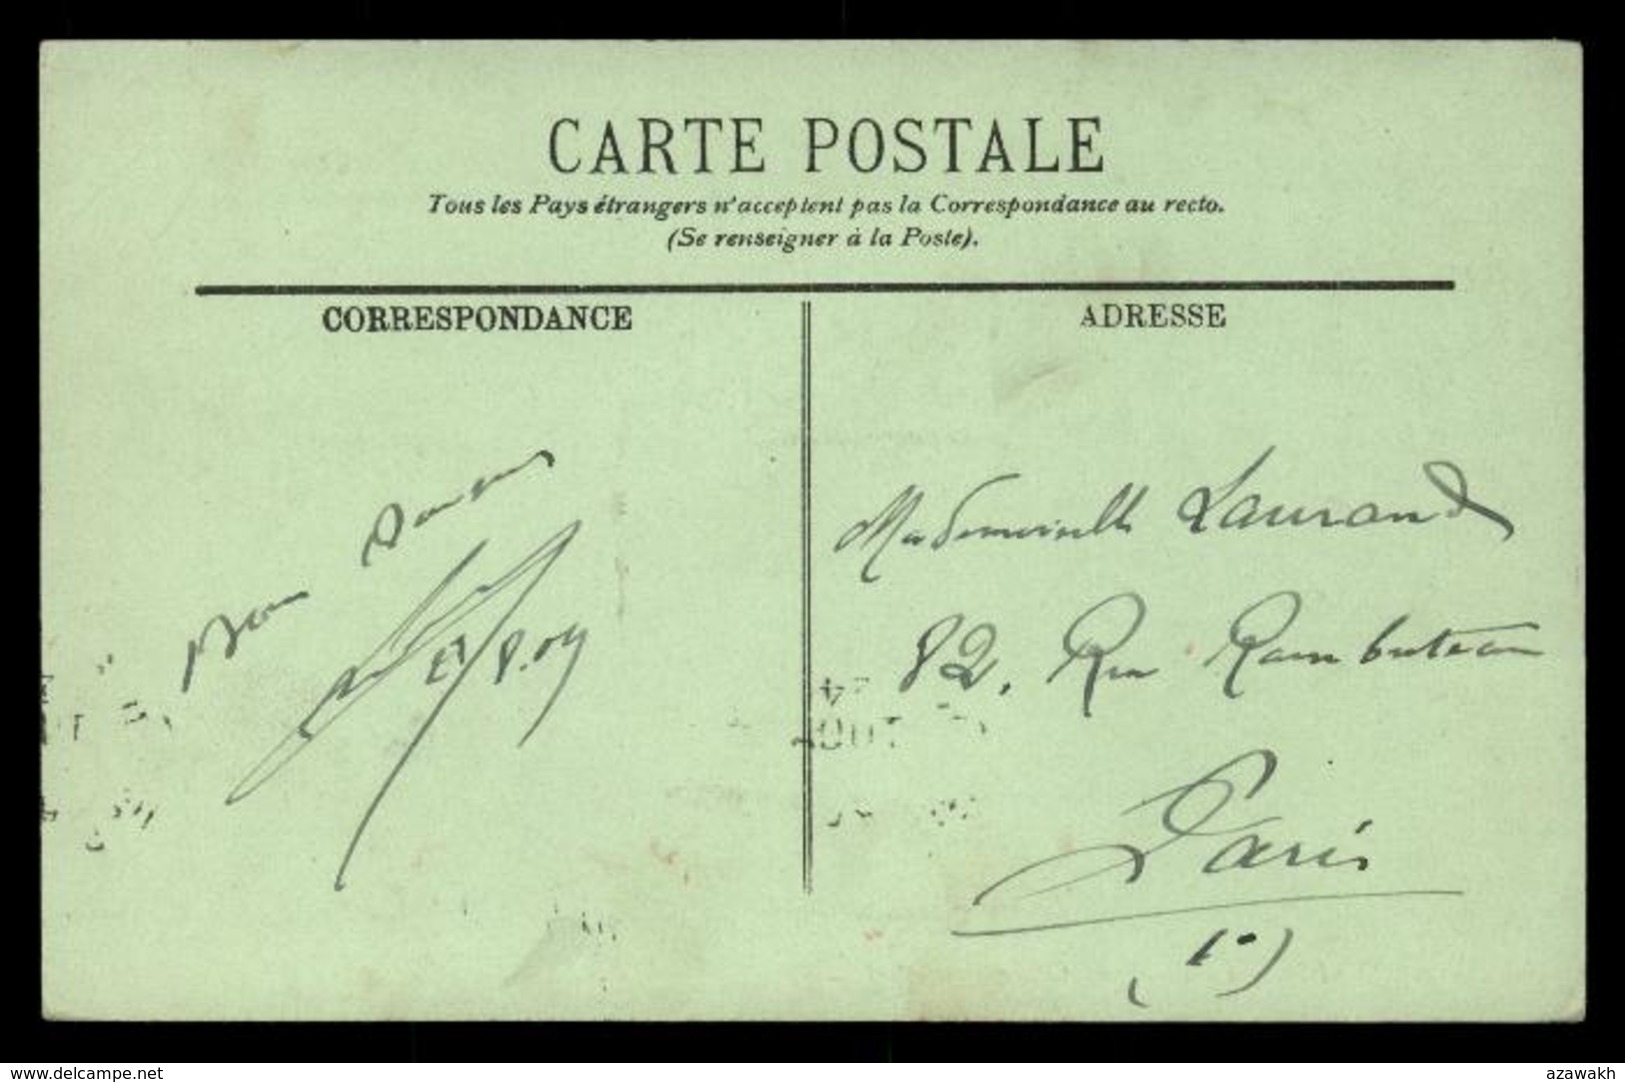 CARTE POSTALE
Tous les Pays étrangers n'acceptent pas la Correspondance au recto.
(Se renseigner à la Poste).
CORRESPONDANCE
ADRESSE
Mademoiselle Laurand
82, Rue Rambuteau
Paris
(1º)
Bon
8.09
www.delcampe.net
azawakh